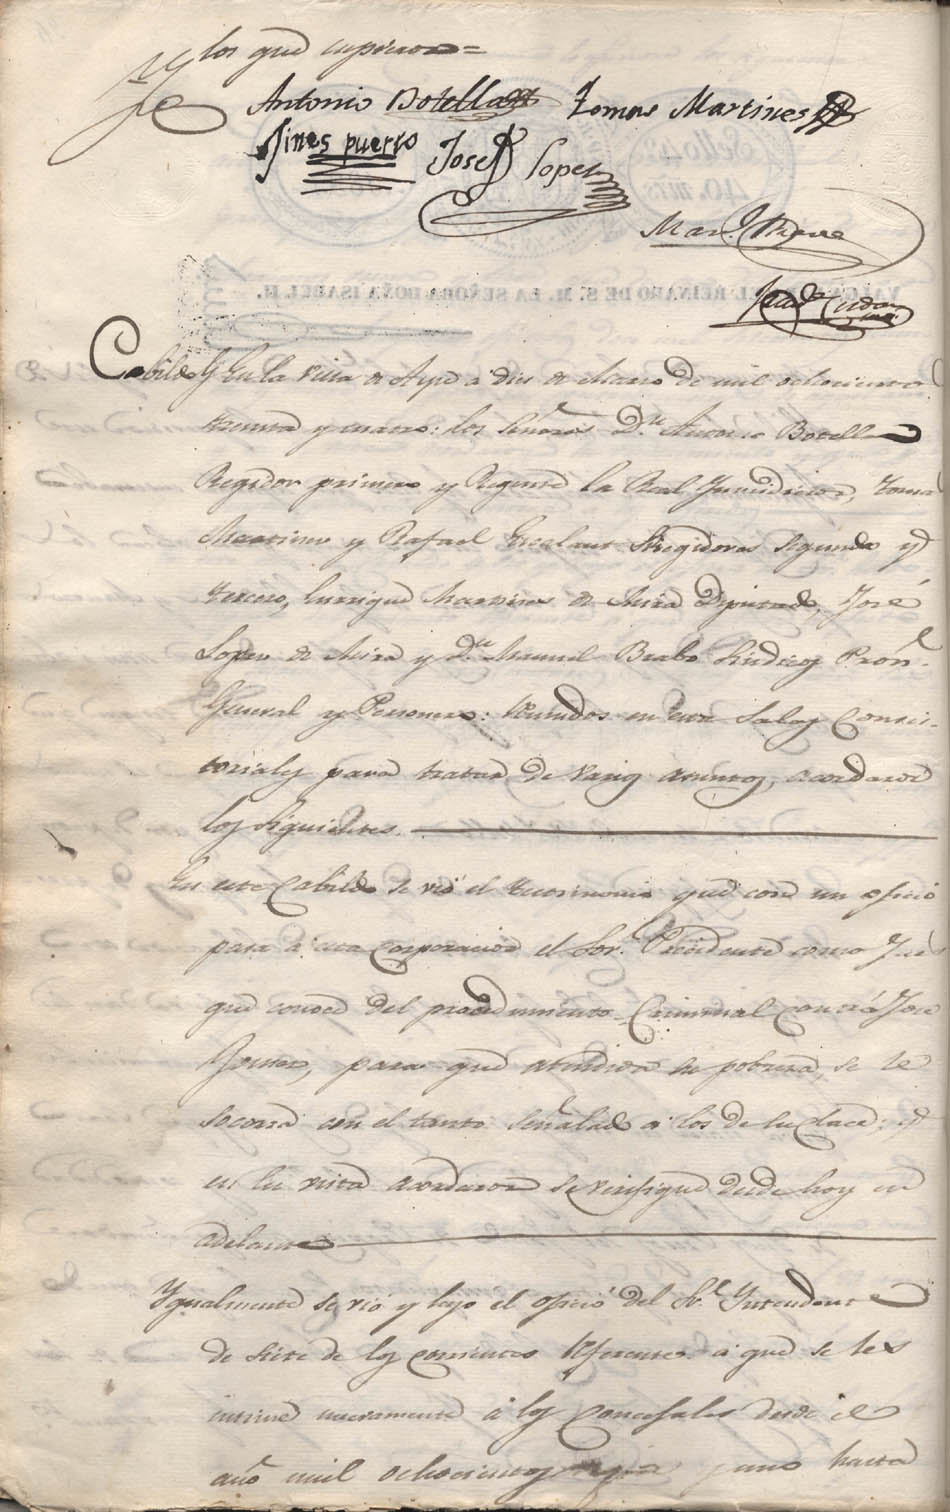 los que supieron=
Antonio Botella Tomas Martines
Jines puerto Josef Lopes
Man.l Brave
VALGA EL REINADO DE S. M. LA SEÑORA DOÑA ISABEL II.
Cabildo En la villa de Aspe a dies de Marzo de mil ochocientos
treinta y cuatro: los Señores D.n Antonio Botella
Regidor primero y Regente la Real Jurisdiccion, Tomas
Martines y Rafael Escalant Regidores segundo y
tercero, Enrrique Martines de Mira Diputado, José
Lopes de Mira y D.n Manuel Brabo Sindicos Pror.
General y Personero: reunidos en estas Salas Consis-
toriales para tratar de varios asuntos, acordaron
los siguientes
En este Cabildo se vió el testimonio que con un oficio
pasa á esta Corporacion el Sor. Presidente como Jues
que conoce del procedimiento Criminal contrá José
para que atendida su pobreza, se le
socorra con el tanto señalado a los de su clace; y
en su vista acordaron se verifique desde hoy en
adelante
Ygualmente se vió y leyo el oficio del Sr. Yntendente
de siete de los corrientes referente á que se les
intime nuevamente á los Concejales desde el
año mil ochocientos hasta